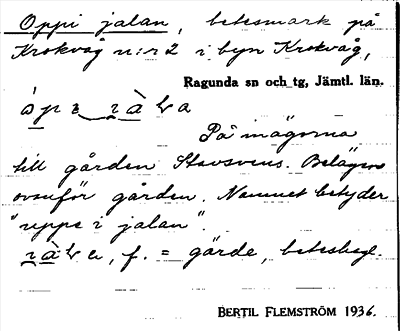 Oppi jalan, betesmark på
Krokvåg n:r 2 i byn Krokvåg,
Ragunda sn och tg, Jämtl. län.
På inägorna
till gården Stavsvens. Belägen
ovanför gården. Namnet betyder
"uppe i jalan".
f. = gärde, beteshag.
BERTIL FLEMSTRÖM 1936.